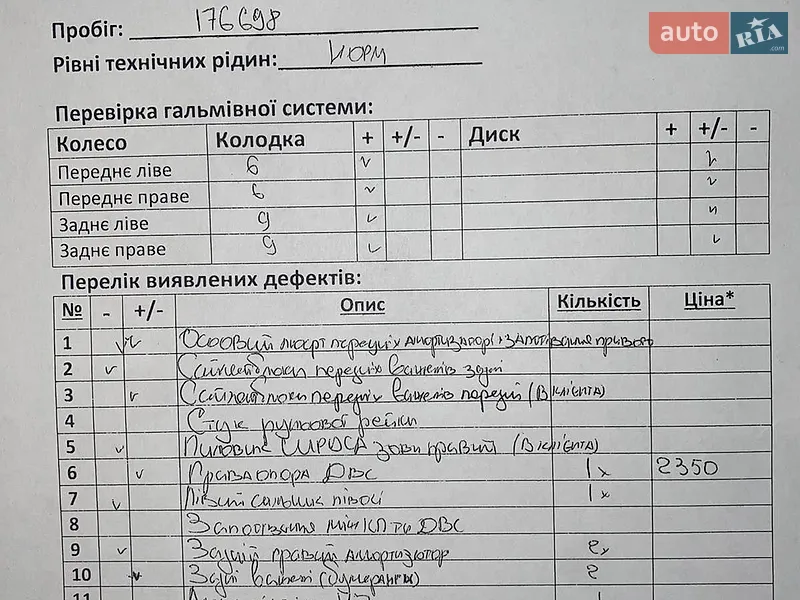 auto RIA .com
Пробіг: 176698
Рівні технічних рідин: Норм
Перевірка гальмівної системи:
Колесо Колодка + +/- - Диск + +/- -
Переднє ліве 6 ✓ ✓
Переднє праве 6 ✓ ✓
Заднє ліве 9 ✓ ✓
Заднє праве 9 ✓ ✓
Перелік виявлених дефектів:
№ - +/- Опис Кількість Ціна*
1 ✓ ✓ передніх
2 ✓ Сайлентблоки передніх важелів задні
3 ✓ Сайлентблоки передніх важелів передні (В клієнта)
4 Стук рульової рейки
5 ✓ Пиловик ШРУСА зовн правий (В клієнта)
6 ✓ Права опора ДВС 1х 2350
7 ✓ Лівий сальник півосі 1х
8 Запотівання між КП та ДВС
9 ✓ Задній правий амортизатор 2х
10 ✓ Задні важелі (бумеранги) 2
11